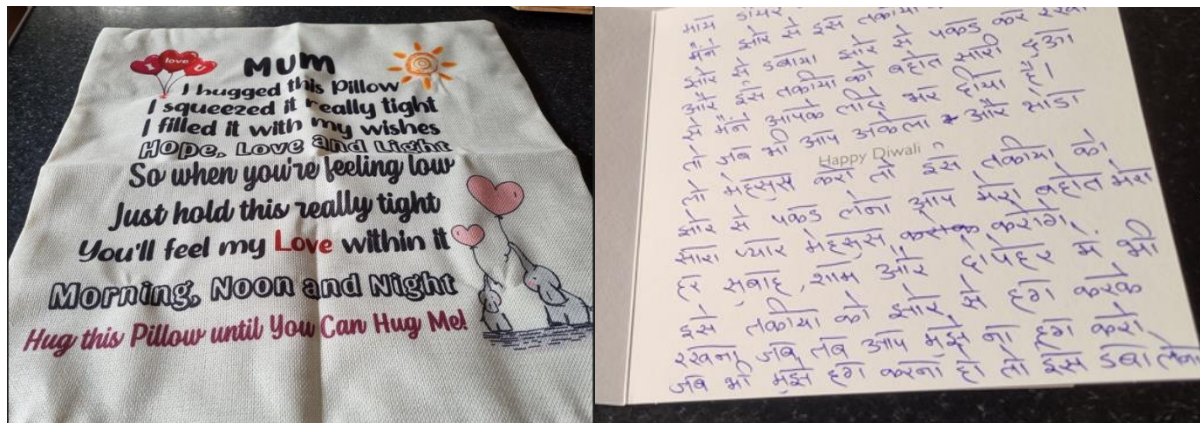 I love U
MUM
I hugged this Pillow
I squeezed it really tight
I filled it with my wishes
Hope, Love and Light
So when you're feeling low
Just hold this really tight
You'll feel my Love within it
Morning, Noon and Night
Hug this Pillow until You Can Hug Me!
माय डीयर
मैंने झोर से इसे तकीया
झोर से डबाया झोर से पकड कर रखा
और इस तकीया को बहोत सारी दुआ
से मैंने आपके लीये भर दीया है।
तो जब भी आप अकेला और थोडा
Happy Diwali
लो मेहसुस करो तो इस तकीया को
झोर से पकड लेना आप मेरा बहोत मेरा
सारा प्यार मेहसुस करोगे,
हर सुबाह, शाम और दोपेहर में भी
इसे तकीया को झोर से हग करके
रखना जब तब आप मुझे ना हग करो,
जब भी मुझे हग करना हो तो इस डबा लेना